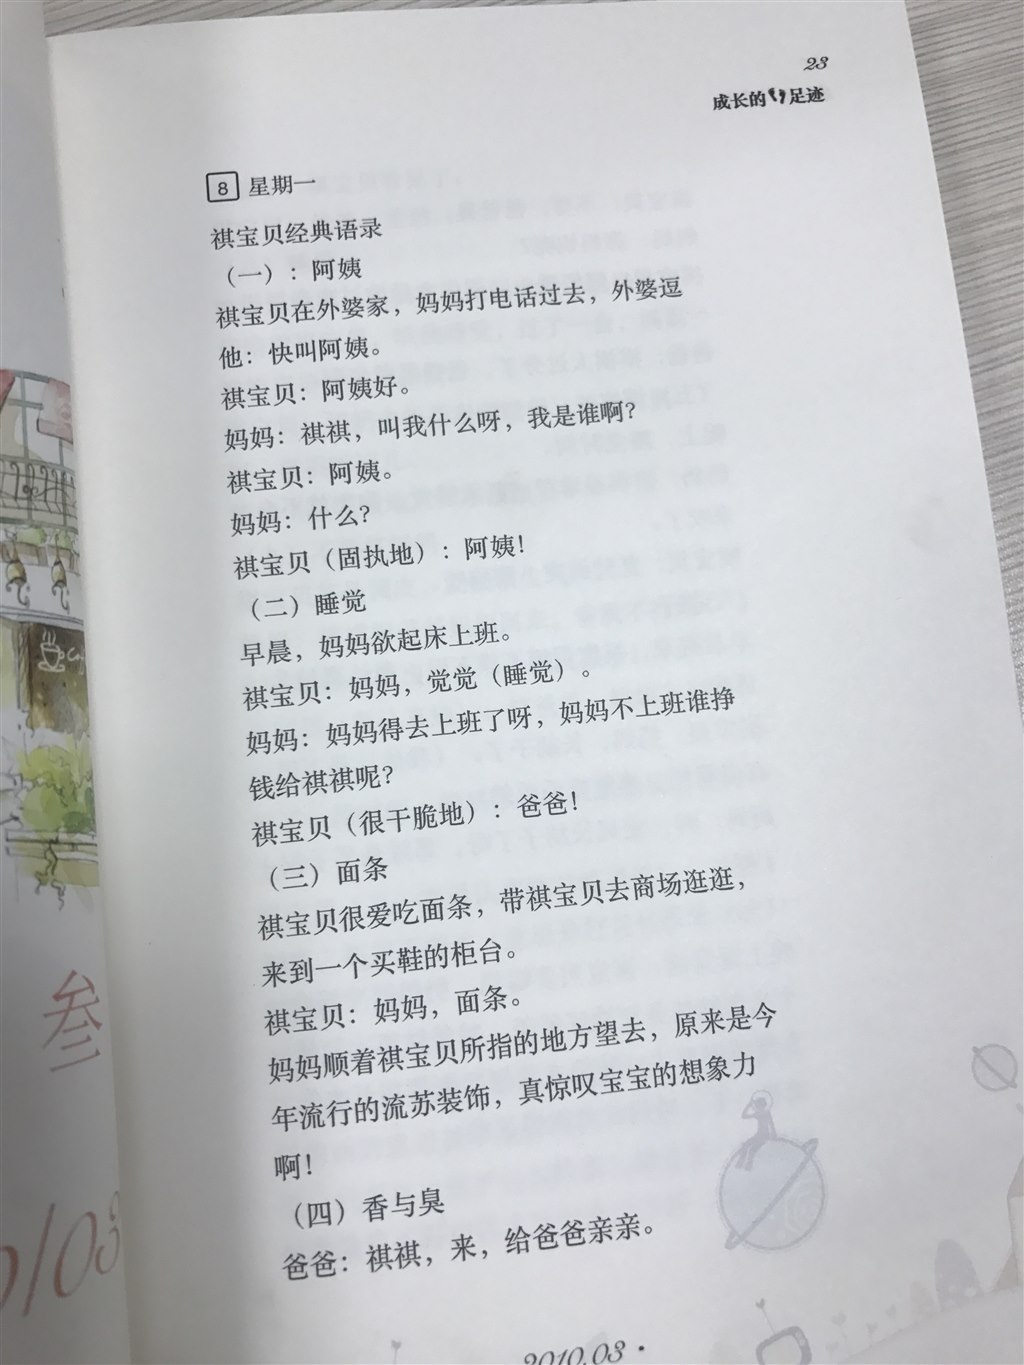 23
成长的足迹
8 星期一
祺宝贝经典语录
（一）：阿姨
祺宝贝在外婆家，妈妈打电话过去，外婆逗
他：快叫阿姨。
祺宝贝：阿姨好。
妈妈：祺祺，叫我什么呀，我是谁啊？
祺宝贝：阿姨。
妈妈：什么？
祺宝贝（固执地）：阿姨！
（二）睡觉
早晨，妈妈欲起床上班。
祺宝贝：妈妈，觉觉（睡觉）。
妈妈：妈妈得去上班了呀，妈妈不上班谁挣
钱给祺祺呢？
祺宝贝（很干脆地）：爸爸！
（三）面条
祺宝贝很爱吃面条，带祺宝贝去商场逛逛，
来到一个买鞋的柜台。
祺宝贝：妈妈，面条。
妈妈顺着祺宝贝所指的地方望去，原来是今
年流行的流苏装饰，真惊叹宝宝的想象力
啊！
（四）香与臭
爸爸：祺祺，来，给爸爸亲亲。
2010.03 ·
叁
0/03